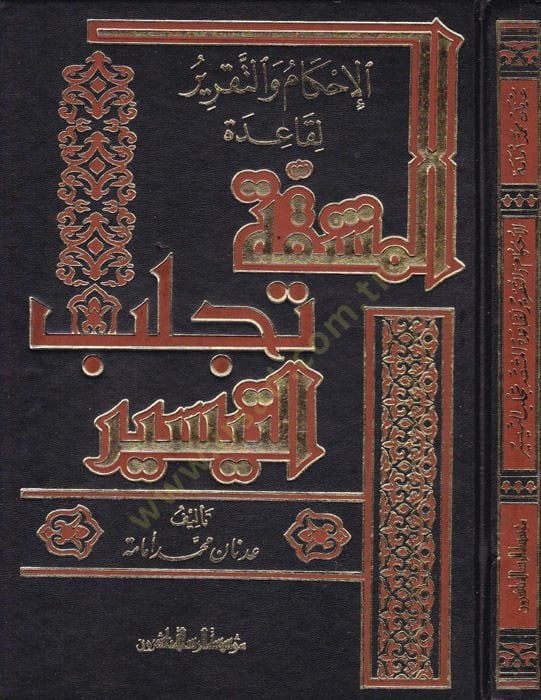 الإحكام والتقرير
لقاعدة
المشقة
تجلب
التيسير
تأليف
عدنان محمد أمامة
مؤسسة الرسالة ناشرون
عدنان محمد أمامة
الإحكام والتقرير لقاعدة المشقة تجلب التيسير
مؤسسة الرسالة ناشرون